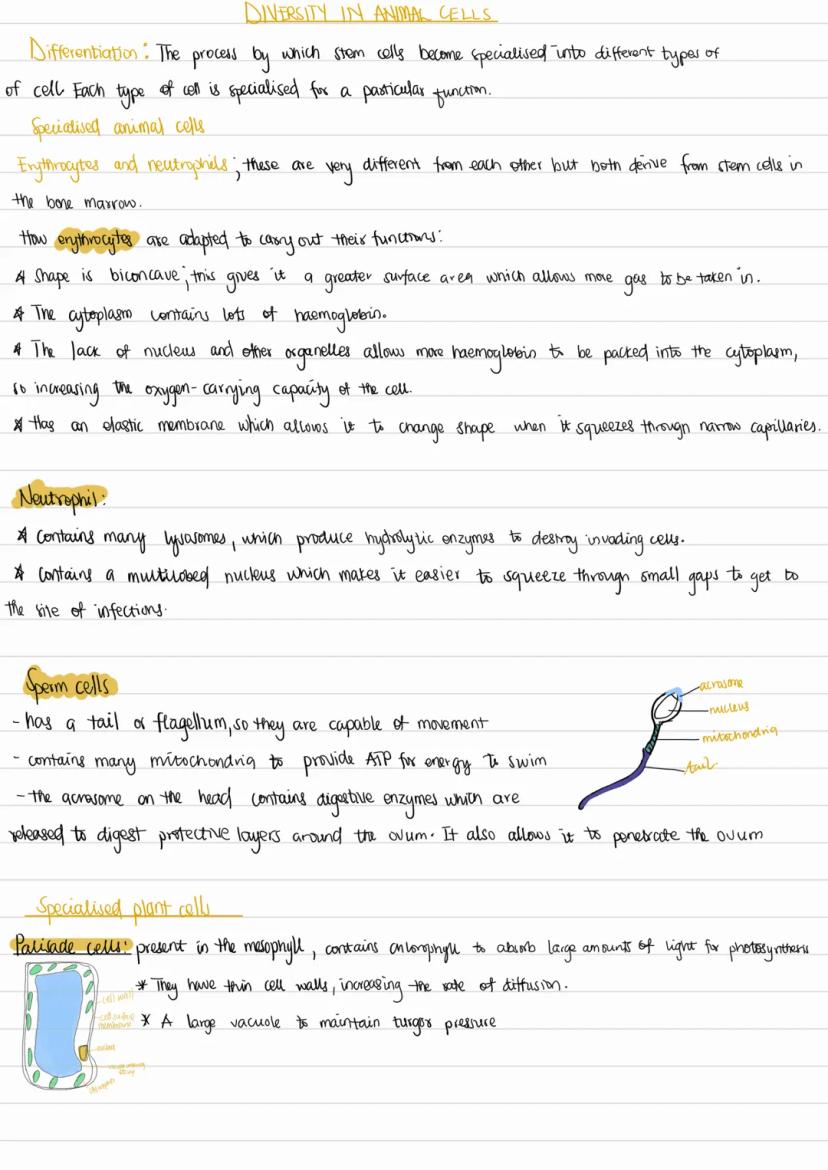 DIVERSITY IN ANIMAL CELLS
Differentiation: The process by which stem cells become specialised into different types of
of cell. Each type of cell is specialised for a particular function.
Specialised animal cells
Erythrocytes and neutrophils; these are very different from each other but both derive from stem cells in
the bone marrow.
How erythrocytes are adapted to carry out their functions:
* Shape is biconcave; this gives it a greater surface area which allows more gas to be taken in.
* The cytoplasm contains lots of haemoglobin.
* The lack of nucleus and other organelles allows more haemoglobin to be packed into the cytoplasm,
so increasing the oxygen-carrying capacity of the cell.
* Has an elastic membrane which allows it to change shape when it squeezes through narrow capillaries.
Neutrophil:
* Contains many lysosomes, which produce hydrolytic enzymes to destroy invading cells.
* Contains a multilobed nucleus which makes it easier to squeeze through small gaps to get to
the site of infections.
Sperm cells
acrosome
nucleus
mitochondria
tail
- has a tail or flagellum, so they are capable of movement
- contains many mitochondria to provide ATP for energy to swim
- the acrosome on the head contains digestive enzymes which are
released to digest protective layers around the ovum. It also allows it to penetrate the ovum
Specialised plant cells
Palisade cells: present in the mesophyll, contains chlorophyll to absorb large amounts of light for photosynthesis
* They have thin cell walls, increasing the rate of diffusion.
* A large vacuole to maintain turgor pressure
cell wall
cell surface
membrane
nucleus
chloroplast